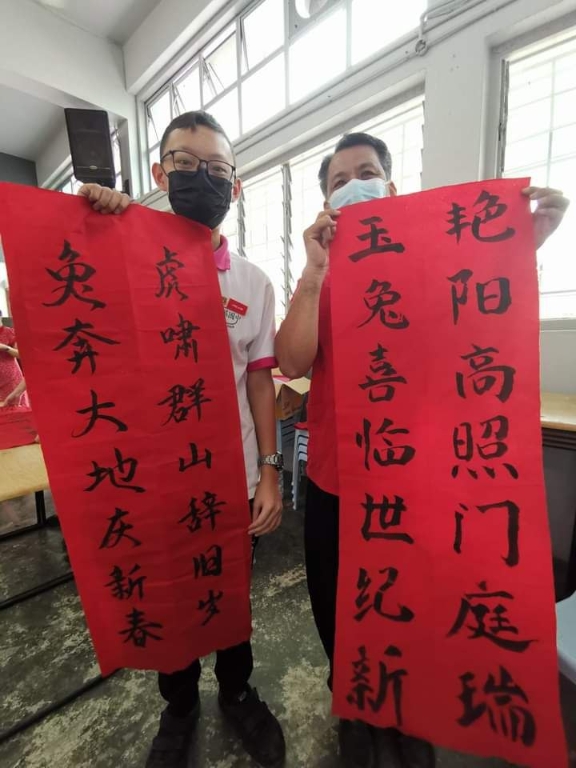 虎啸群山辞旧岁
兔奔大地庆新春
艳阳高照门庭瑞
玉兔喜临世纪新